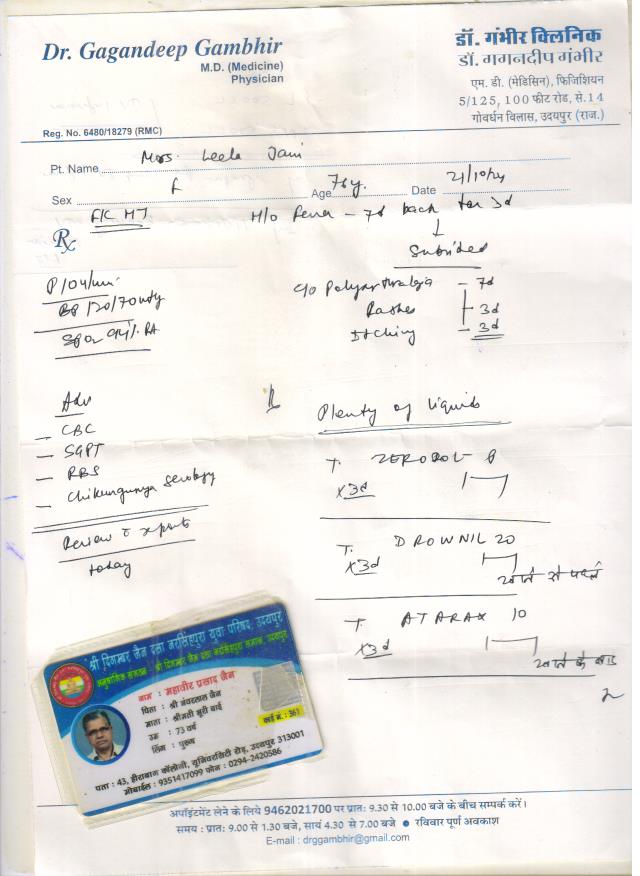 Dr. Gagandeep Gambhir
M.D. (Medicine)
Physician
Reg. No. 6480/18279 (RMC)
डॉ. गंभीर क्लिनिक
डॉ. गगनदीप गंभीर
एम. डी. (मेडिसिन), फिजिशियन
5/125, 100 फीट रोड, से.14
गोवर्धन विलास, उदयपुर (राज.)
Pt. Name Mrs. Leela Jain
Sex F Age Date 21/10/24
H/o fever - 7d back for 3d
↓
Subsided
Rx
BP 120/70
SpO2 94% RA
c/o Polyarthralgia - 7d
Rashes - 3d
Itching - 3d
Adv
- CBC
- SGPT
- RBS
- Chikungunya serology
Review c reports
today
Plenty of liquids
T. ZERODOL - P
x3d
T. DROWNIL 20
x3d
खाने से पहले
T. ATARAX 10
x3d
खाने के बाद
श्री दिगम्बर जैन दशा नरसिंहपुरा युवा परिषद, उदयपुर
नाम : महावीर प्रसाद जैन
पिता : श्री भंवरलाल जैन
माता : श्रीमती भूरी बाई
उम्र : 73 वर्ष
लिंग : पुरुष
कार्ड नं. : 361
पता : 43, हीराबाग कॉलोनी, यूनिवरसिटी रोड़, उदयपुर 313001
मोबाईल : 9351417099 फोन : 0294-2420586
अपॉइंटमेंट लेने के लिये 9462021700 पर प्रातः 9.30 से 10.00 बजे के बीच सम्पर्क करें।
समय : प्रातः 9.00 से 1.30 बजे, सायं 4.30 से 7.00 बजे ● रविवार पूर्ण अवकाश
E-mail : drggambhir@gmail.com